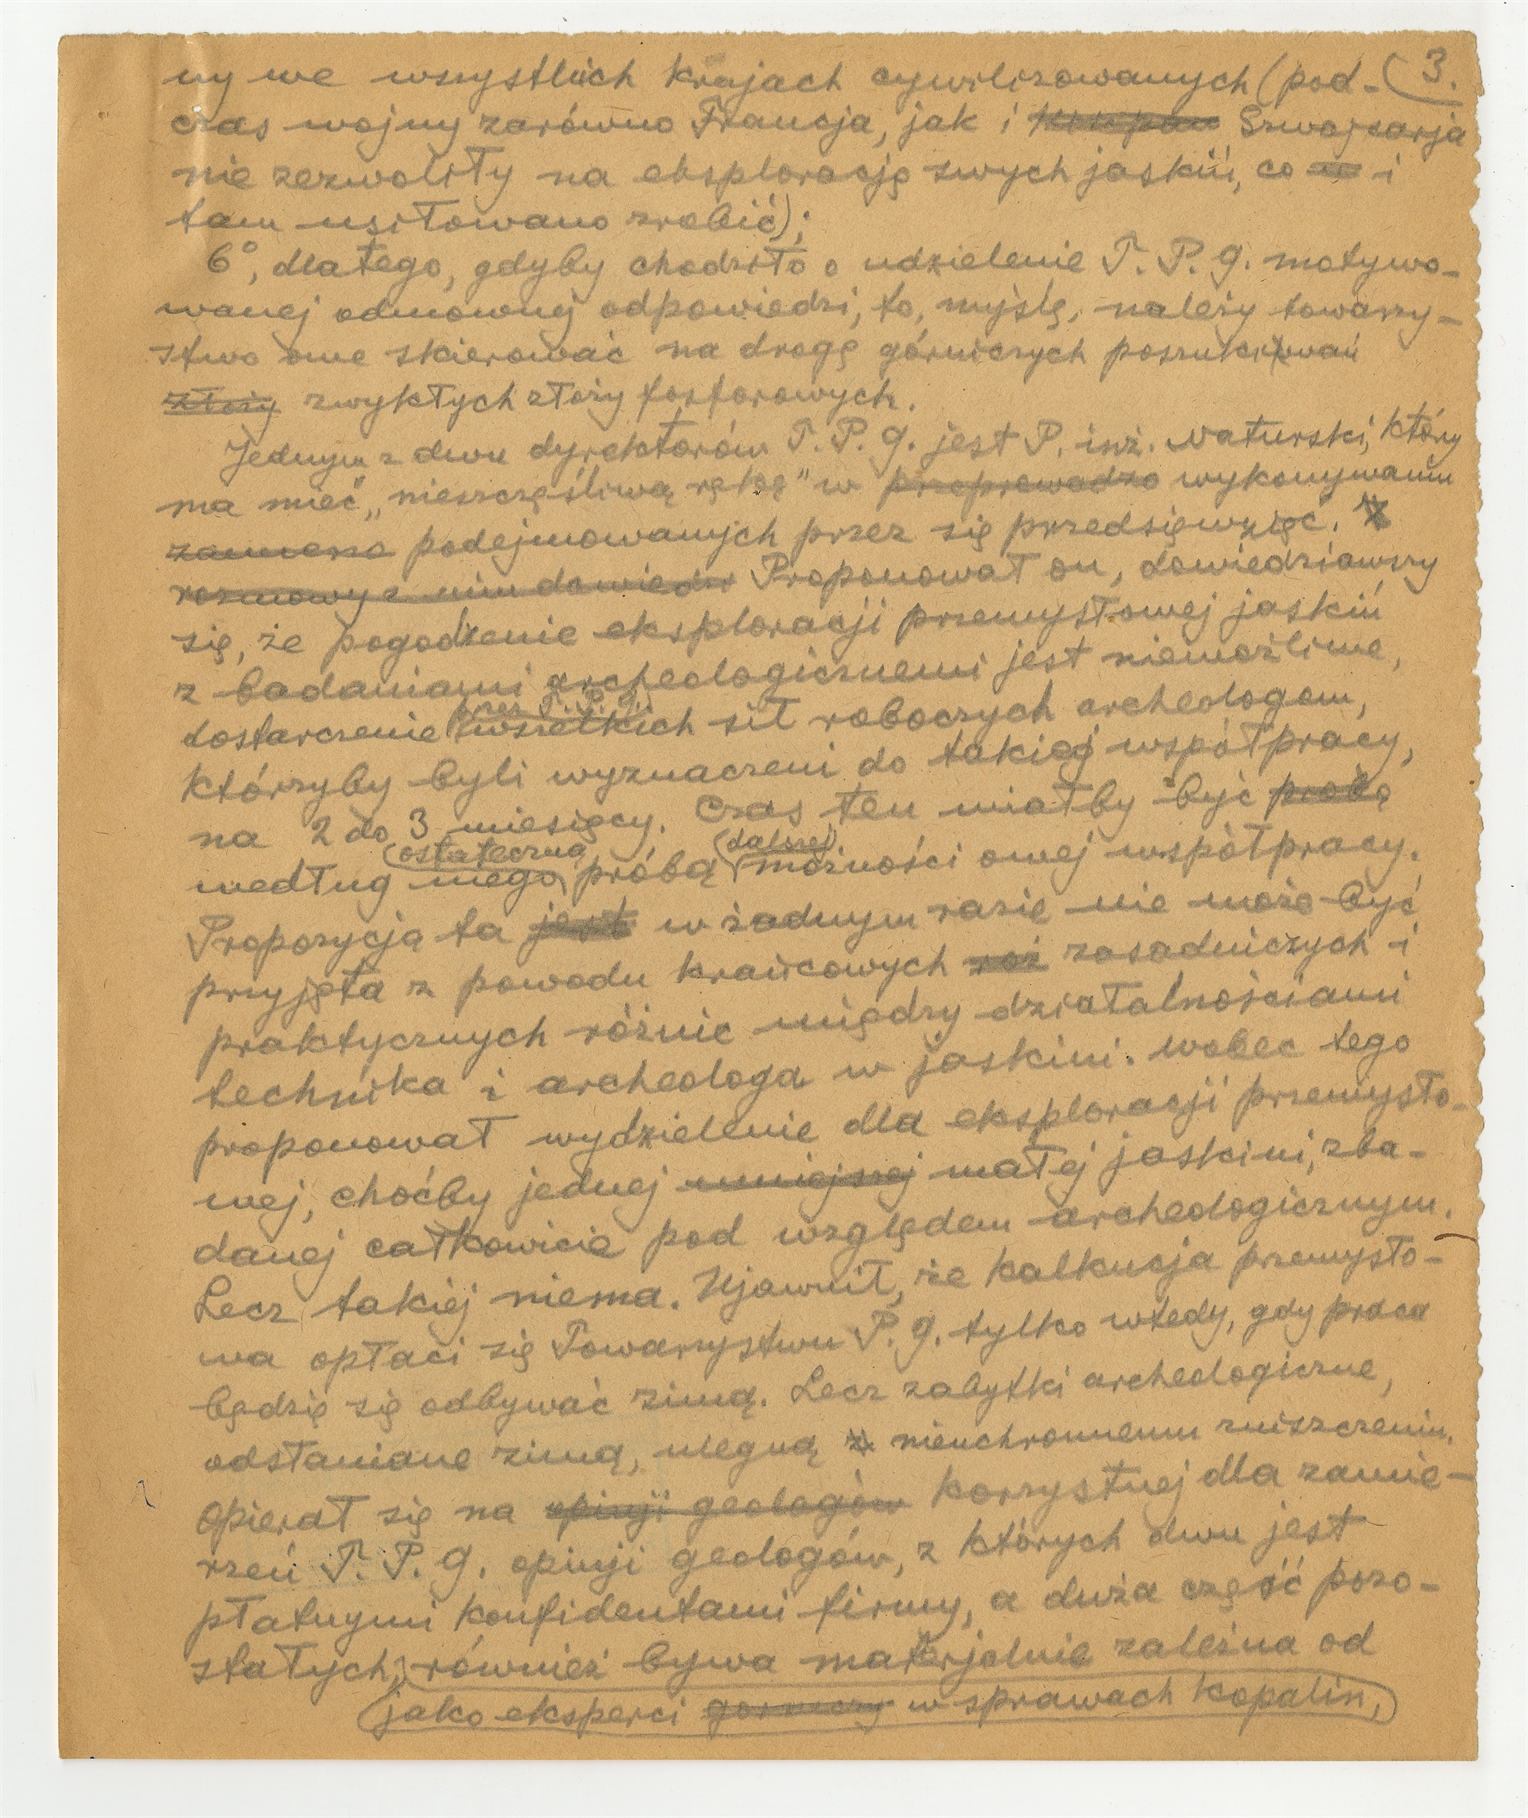 3.
ny we wszystkich krajach cywilizowanych (pod-
czas wojny zarówno Francja, jak i Szwajcarja
nie zezwoliły na eksplorację swych jaskiń, co i
tam usiłowano zrobić);
6°, dlatego, gdyby chodziło o udzielenie T. P. G. motywo-
wanej odmownej odpowiedzi, to, myślę, należy towarzy-
stwo owe skierować na drogę górniczych poszukiwań
złoży zwykłych złoży fosforowych.
Jednym z dwu dyrektorów T. P. G. jest P. inż. Naturski, który
ma mieć „nieszczęśliwą rękę" w przeprowadza wykonywaniu
zamierze podejmowanych przez się przedsięwzięć.
rozmowy z nim dowiedz Proponował on, dowiedziawszy
się, że pogodzenie eksploracji przemysłowej jaskiń
z badaniami archeologicznemi jest niemożliwe,
dostarczenie przez T. P. G. wszelkich sił roboczych archeologom,
którzyby byli wyznaczeni do takiej współpracy,
na 2 do 3 miesięcy. Czas ten miałby być próbą
według niego ostateczną próbą dalszej możności owej współpracy.
Propozycją ta jest w żadnym razie nie może być
przyjęta z powodu krańcowych róż zasadniczych i
praktycznych różnic między działalnościami
technika i archeologa w jaskini. Wobec tego
proponował wydzielenie dla eksploracji przemysło-
wej, choćby jednej mniejszej małej jaskini, zba-
danej całkowicie pod względem archeologicznym.
Lecz takiej niema. Ujawnił, że kalkucja przemysło-
wa opłaci się Towarzystwu P. G. tylko wtedy, gdy praca
będzie się odbywać zimą. Lecz zabytki archeologiczne,
odsłaniane zimą, ulegną z nieuchronnemu zniszczeniu.
Opierał się na opinji geologów korzystnej dla zamie-
rzeń T. P. G. opinji geologów, z których dwu jest
płatnymi konfidentami firmy, a duża część pozo-
stałych, również bywa materjalnie zależna od
jako eksperci górniczy w sprawach kopalin,